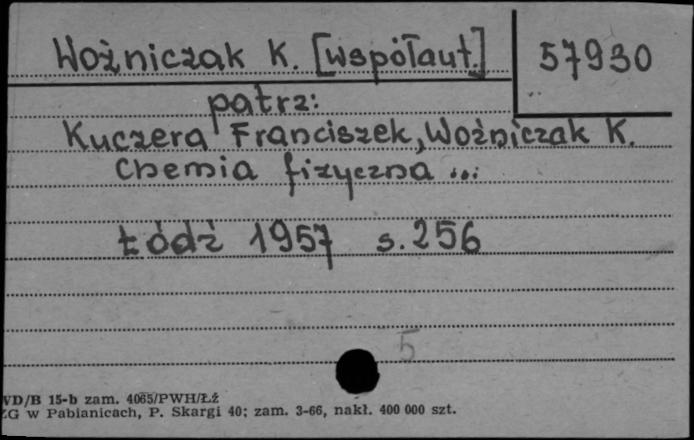 Woźniczak K. [współaut.] 57930
patrz:
Kuczera Franciszek, Woźniczak K.
Chemia fizyczna ...
Łódź 1957 s. 256
5
VD/B 15-b zam. 4065/PWH/Łź
ZG w Pabianicach, P. Skargi 40; zam. 3-66, nakł. 400 000 szt.